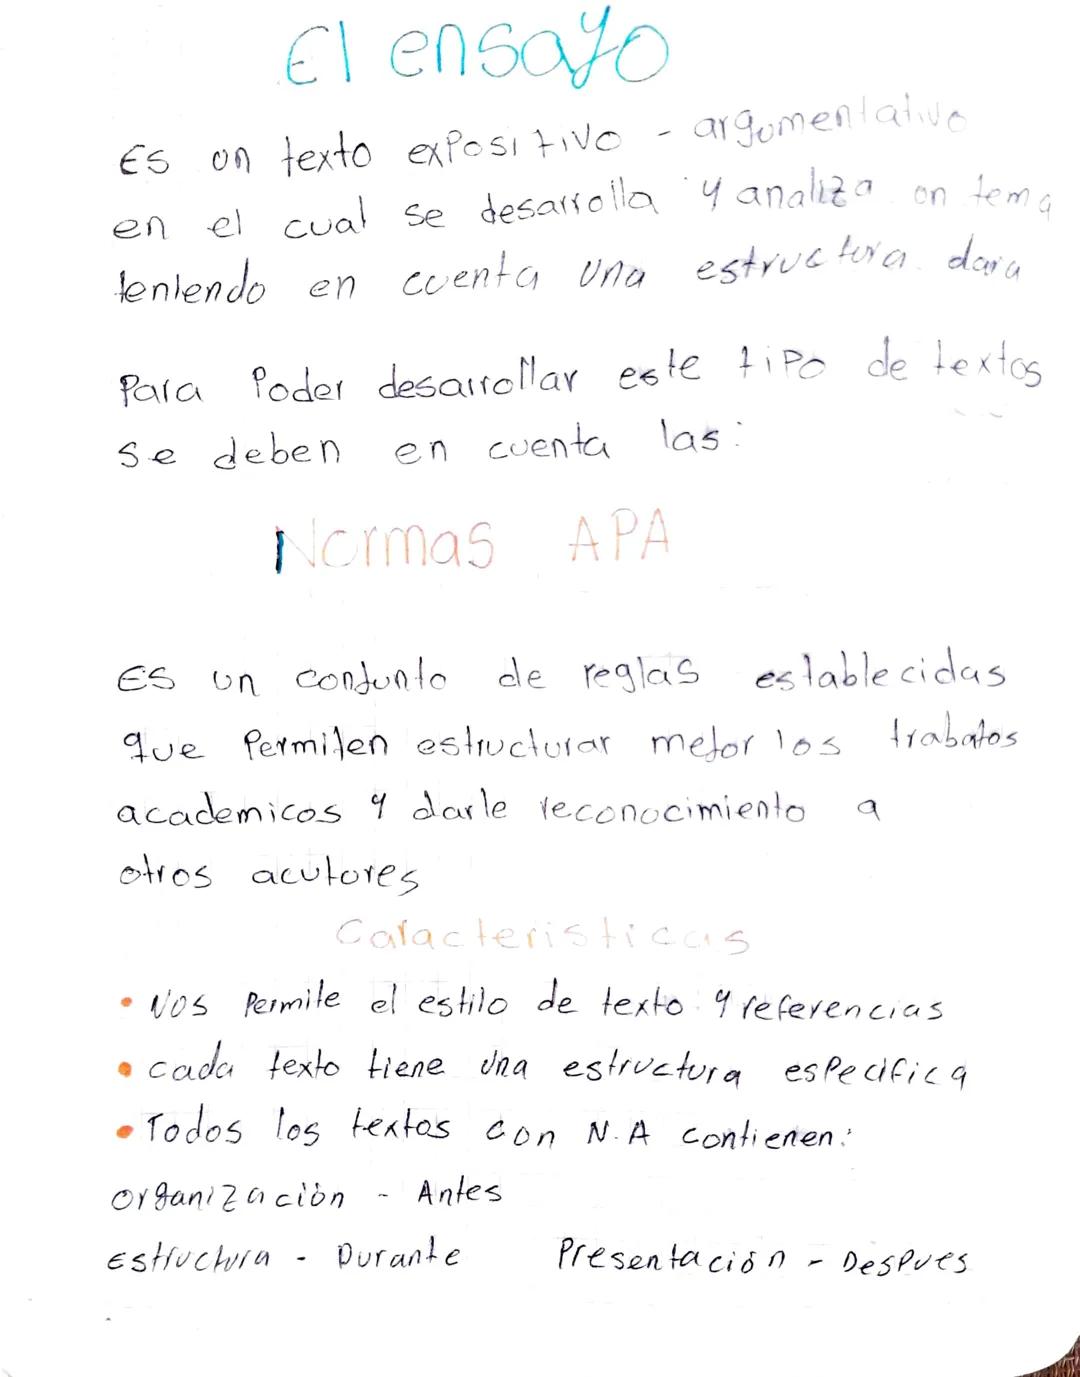 El ensayo
Es un texto expositivo - argumentativo
en el cual se desarrolla y analiza un tema
teniendo en cuenta una estructura clara
Para Poder desarrollar este tipo de textos
se deben en cuenta las:
Normas APA
Es un conjunto de reglas establecidas
que Permiten estructurar mejor los trabajos
academicos y darle reconocimiento a
otros acutores
Caracteristicas
• Nos Permite el estilo de texto y referencias
• cada texto tiene una estructura especifica
• Todos los textos con N.A contienen:
organización - Antes
Estructura - Durante Presentación - Despues